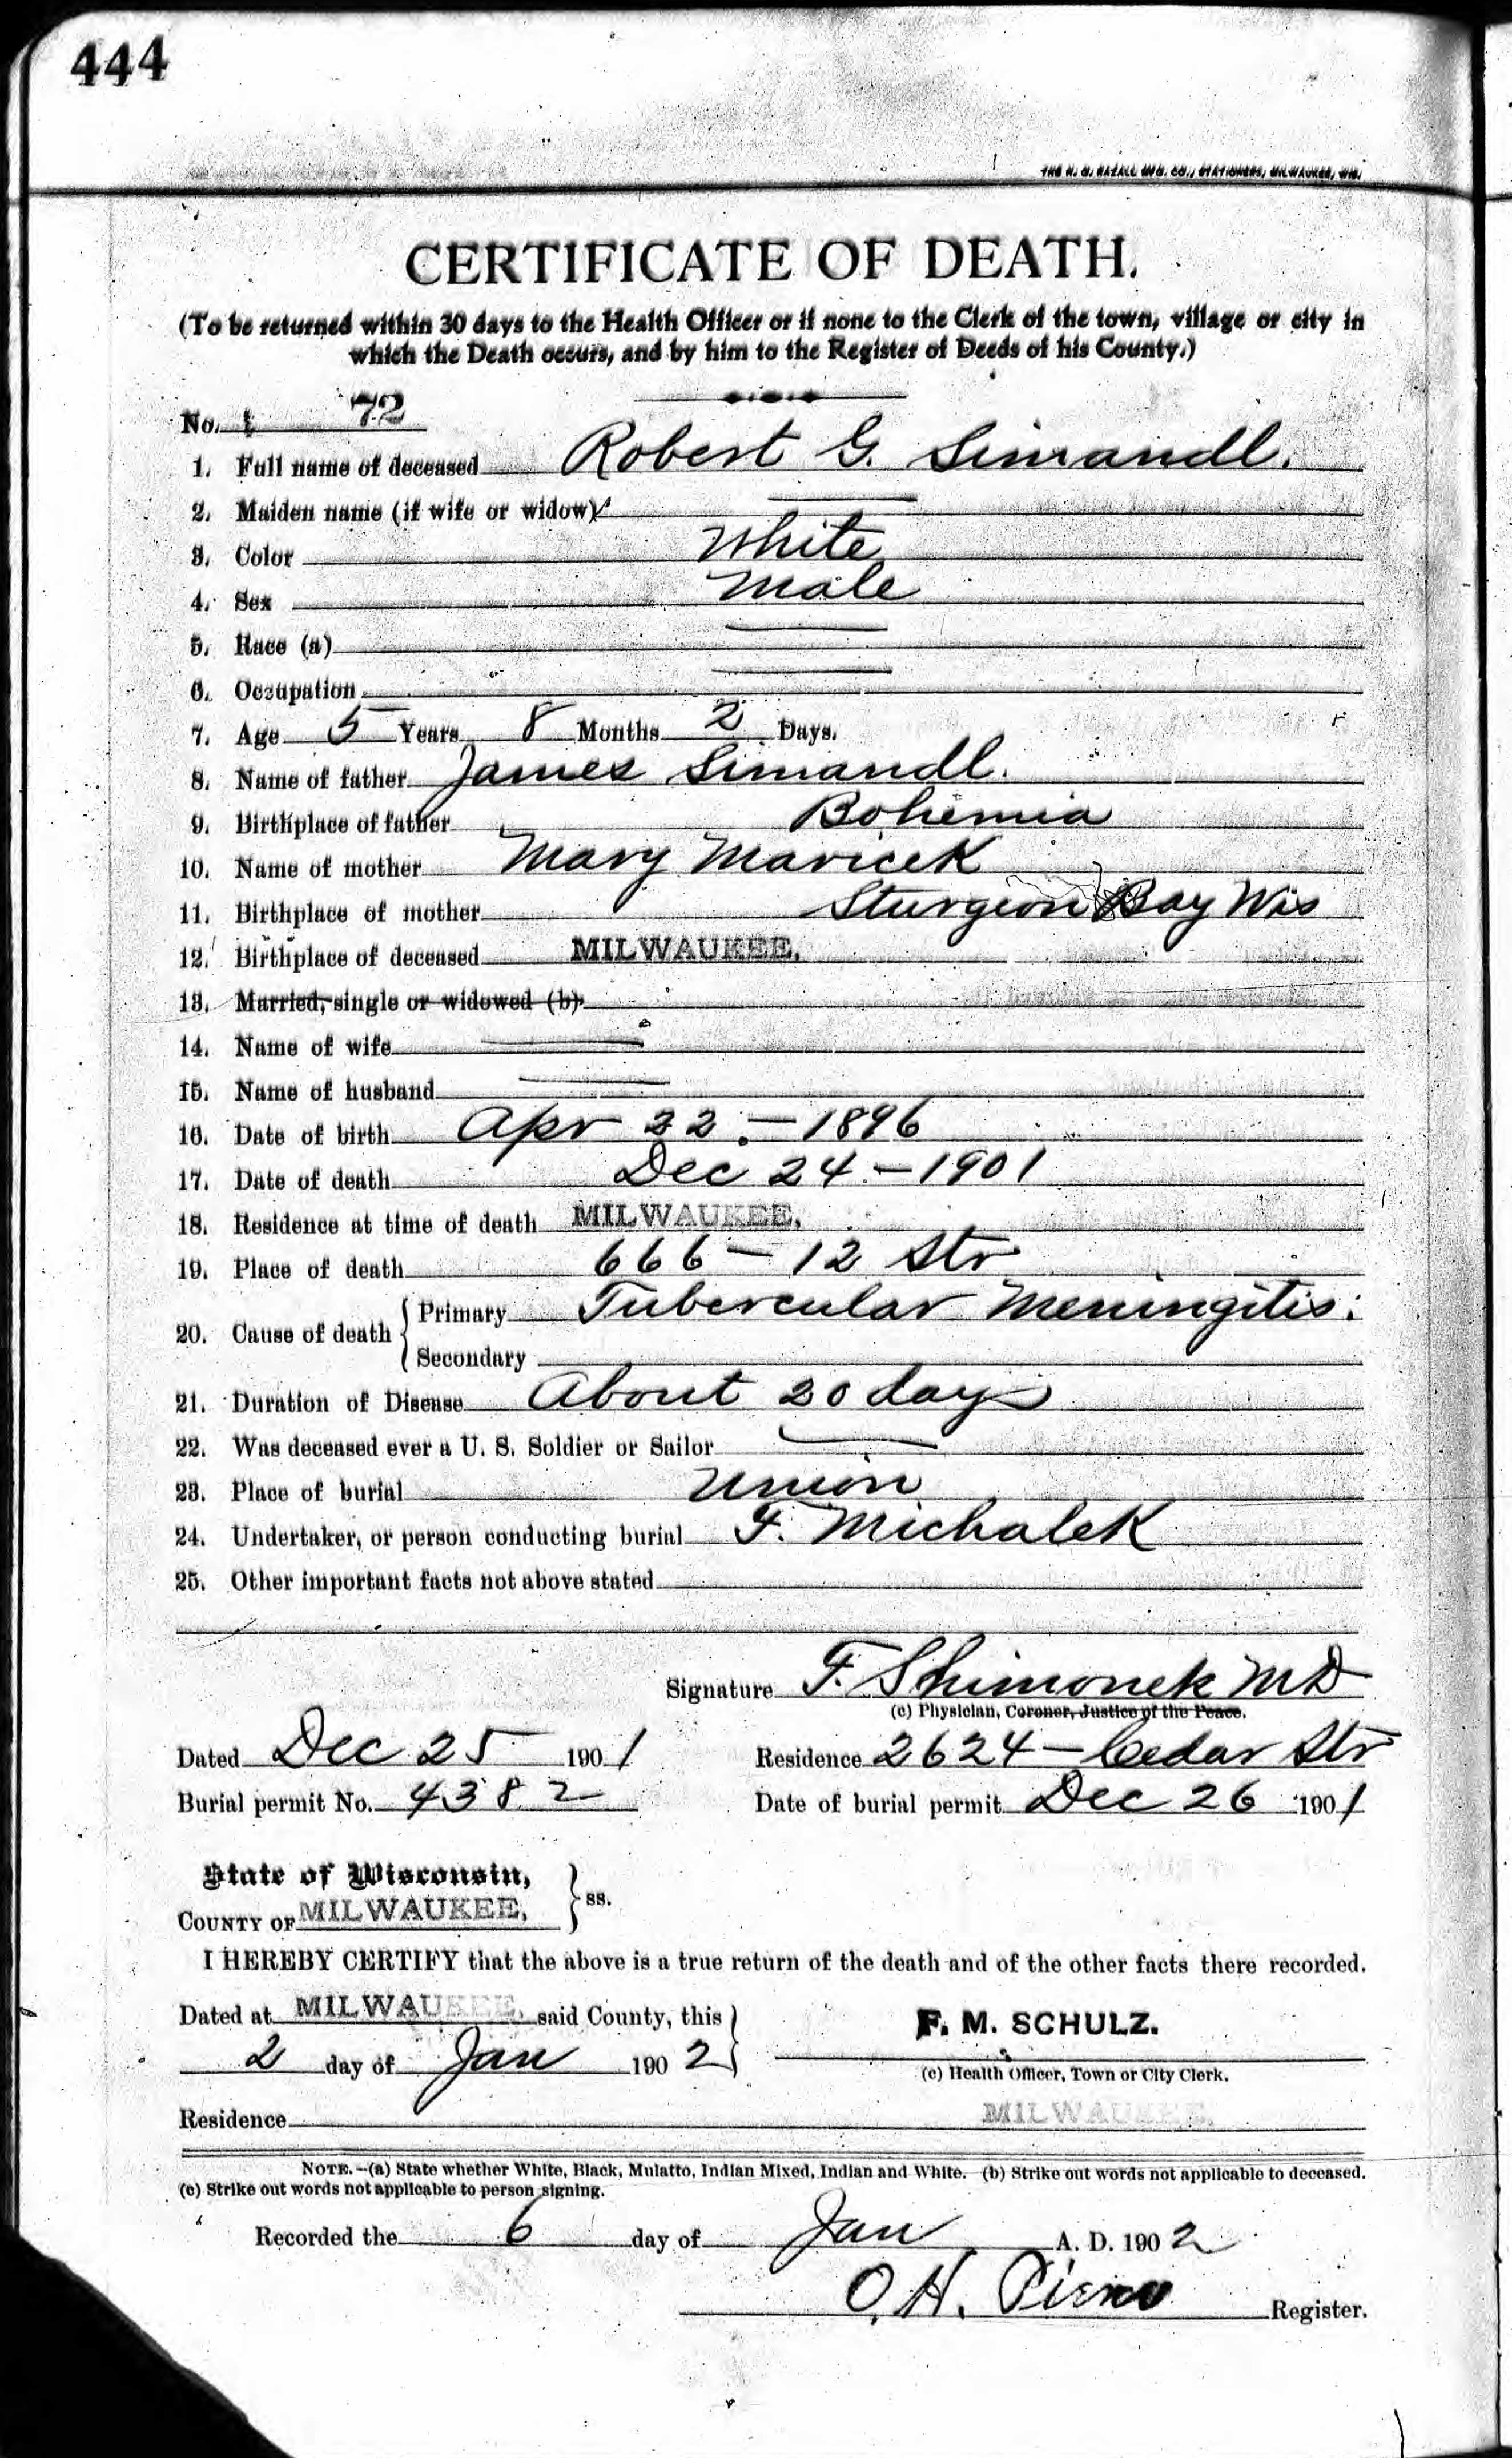 444
THE H. G. RAZALL MFG. CO., STATIONERS, MILWAUKEE, WIS.
CERTIFICATE OF DEATH.
(To be returned within 30 days to the Health Officer or if none to the Clerk of the town, village or city in
which the Death occurs, and by him to the Register of Deeds of his County.)
No. 72
1. Full name of deceased Robert G. Simandl.
2. Maiden name (if wife or widow)
3. Color White
4. Sex Male
5. Race (a)
6. Occupation
7. Age 5 Years 8 Months 2 Days.
8. Name of father James Simandl.
9. Birthplace of father Bohemia
10. Name of mother Mary Maricek
11. Birthplace of mother Sturgeon Bay Wis
12. Birthplace of deceased MILWAUKEE.
13. Married, single or widowed (b)
14. Name of wife
15. Name of husband
16. Date of birth Apr 22.—1896
17. Date of death Dec 24.—1901
18. Residence at time of death MILWAUKEE.
19. Place of death 666—12 Str
20. Cause of death { Primary Tubercular Meningitis.
Secondary
21. Duration of Disease About 20 days
22. Was deceased ever a U. S. Soldier or Sailor
23. Place of burial Union
24. Undertaker, or person conducting burial F. Michalek
25. Other important facts not above stated
Signature F. Shimonek MD
(c) Physician, Coroner, Justice of the Peace.
Dated Dec 25 1901 Residence 2624—Cedar Str
Burial permit No. 4382 Date of burial permit Dec 26 1901
State of Wisconsin,
COUNTY OF MILWAUKEE, } ss.
I HEREBY CERTIFY that the above is a true return of the death and of the other facts there recorded.
Dated at MILWAUKEE, said County, this
F. M. SCHULZ.
2 day of Jan 1902
(c) Health Officer, Town or City Clerk.
Residence MILWAUKEE.
NOTE.—(a) State whether White, Black, Mulatto, Indian Mixed, Indian and White. (b) Strike out words not applicable to deceased.
(c) Strike out words not applicable to person signing.
Recorded the 6 day of Jan A. D. 1902
O. H. Register.